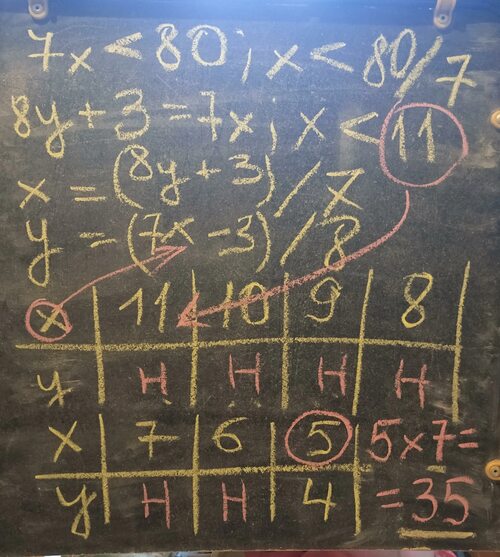 7x < 80; x < 80/7
8y + 3 = 7x; x < 11
x = (8y + 3) / 7
y = (7x - 3) / 8
x 11 10 9 8
y H H H H
x 7 6 5 5x7=
y H H 4 =35